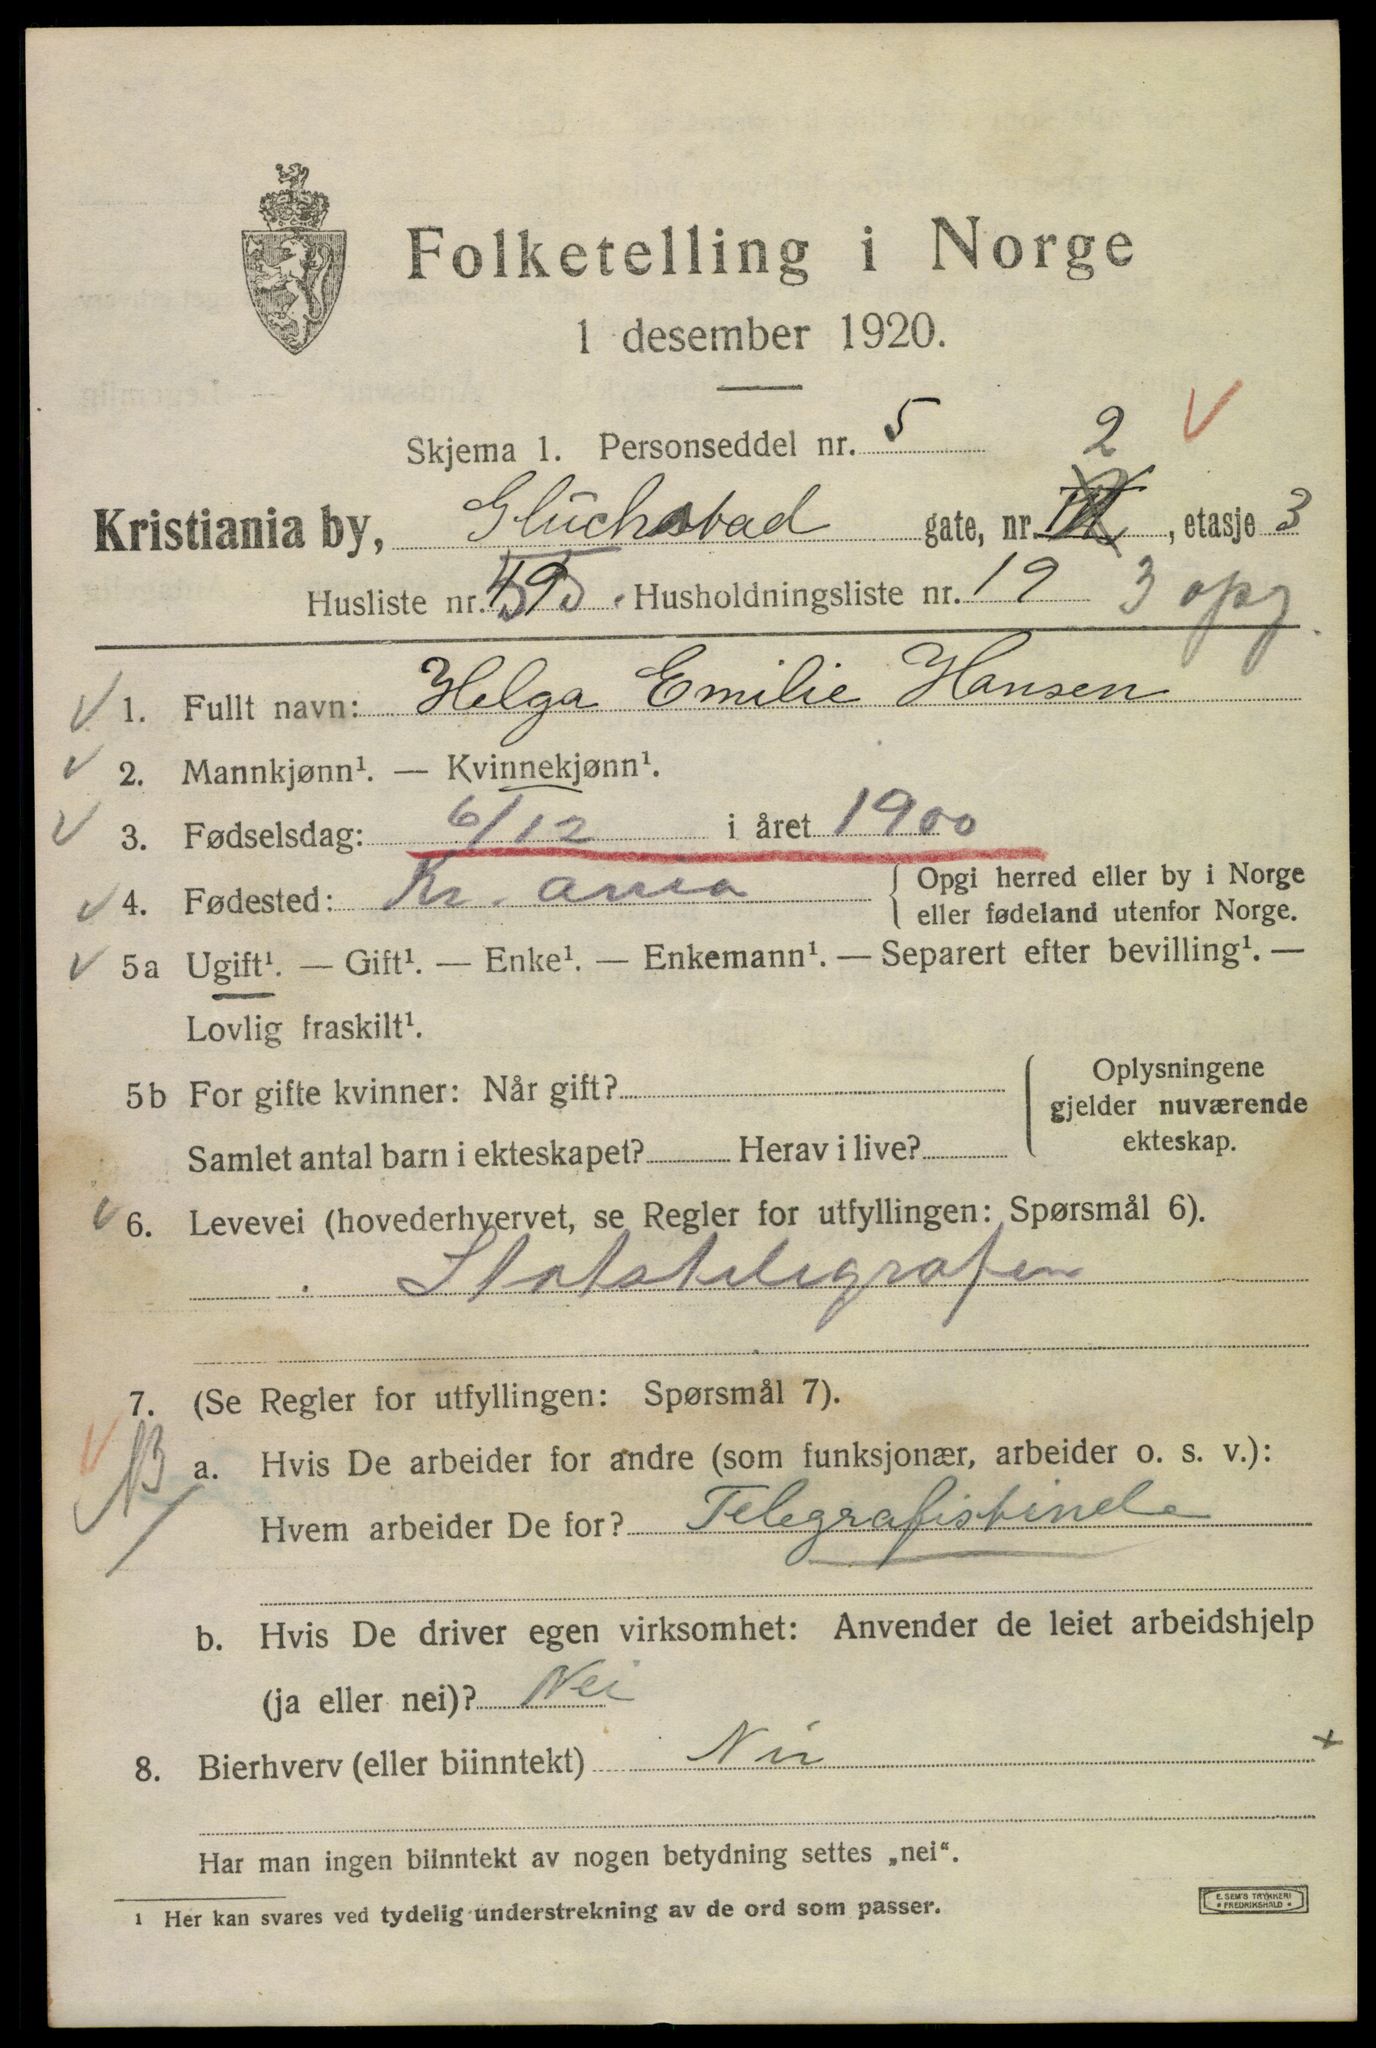 Folketelling i Norge
1 desember 1920.
Skjema 1. Personseddel nr. 5
2
Kristiania by, Glückstad gate, nr. , etasje 3
Husliste nr. 49 Husholdningsliste nr. 19 3 opg.
1. Fullt navn: Helga Emilie Hansen
2. Mannkjønn¹. — Kvinnekjønn¹.
3. Fødselsdag: 6/12 i året 1900
4. Fødested: Kr. ania { Opgi herred eller by i Norge
eller fødeland utenfor Norge.
5a Ugift¹. — Gift¹. — Enke¹. — Enkemann¹. — Separert efter bevilling¹. —
Lovlig fraskilt¹.
5b For gifte kvinner: Når gift?
Samlet antal barn i ekteskapet? Herav i live?
Oplysningene
gjelder nuværende
ekteskap.
6. Levevei (hovederhvervet, se Regler for utfyllingen: Spørsmål 6).
Statstelegrafen
7. (Se Regler for utfyllingen: Spørsmål 7).
a. Hvis De arbeider for andre (som funksjonær, arbeider o. s. v.):
Hvem arbeider De for? Telegrafistinde
b. Hvis De driver egen virksomhet: Anvender de leiet arbeidshjelp
(ja eller nei)? Nei
8. Bierhverv (eller biinntekt) Nei +
Har man ingen biinntekt av nogen betydning settes „nei“.
1 Her kan svares ved tydelig understrekning av de ord som passer.
E. SEM'S TRYKKERI
* FREDRIKSHALD *